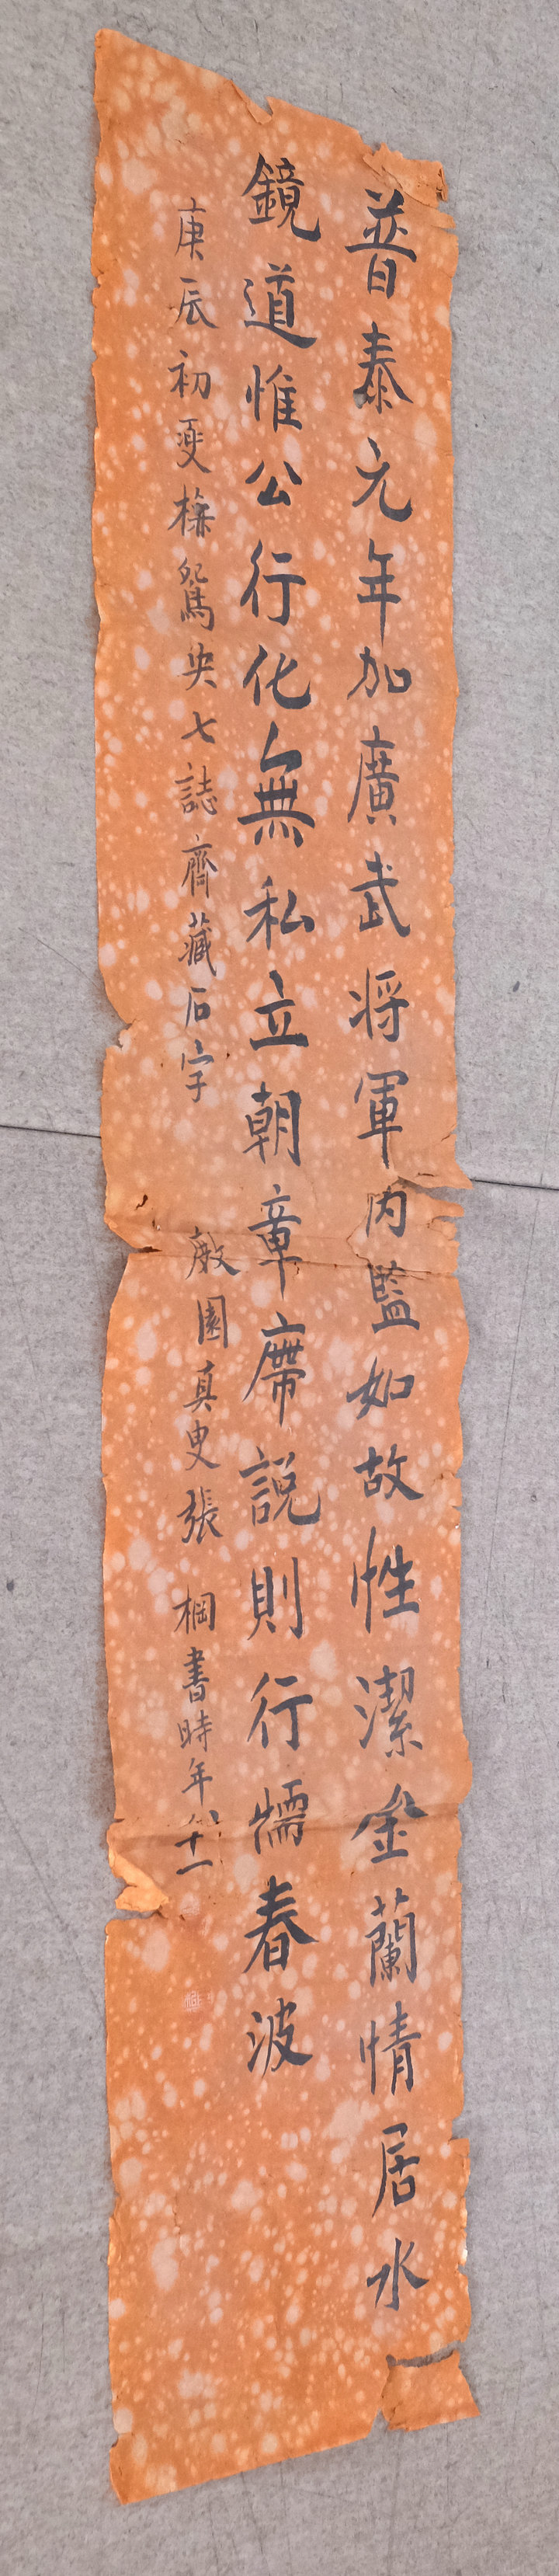 普泰元年加廣武将軍內監如故性潔金蘭情居水
鏡道惟公行化無私立朝章席說則行懦春波
庚辰初夏橅鴛央七誌齊藏石字 園真叟張棡書時年八十一